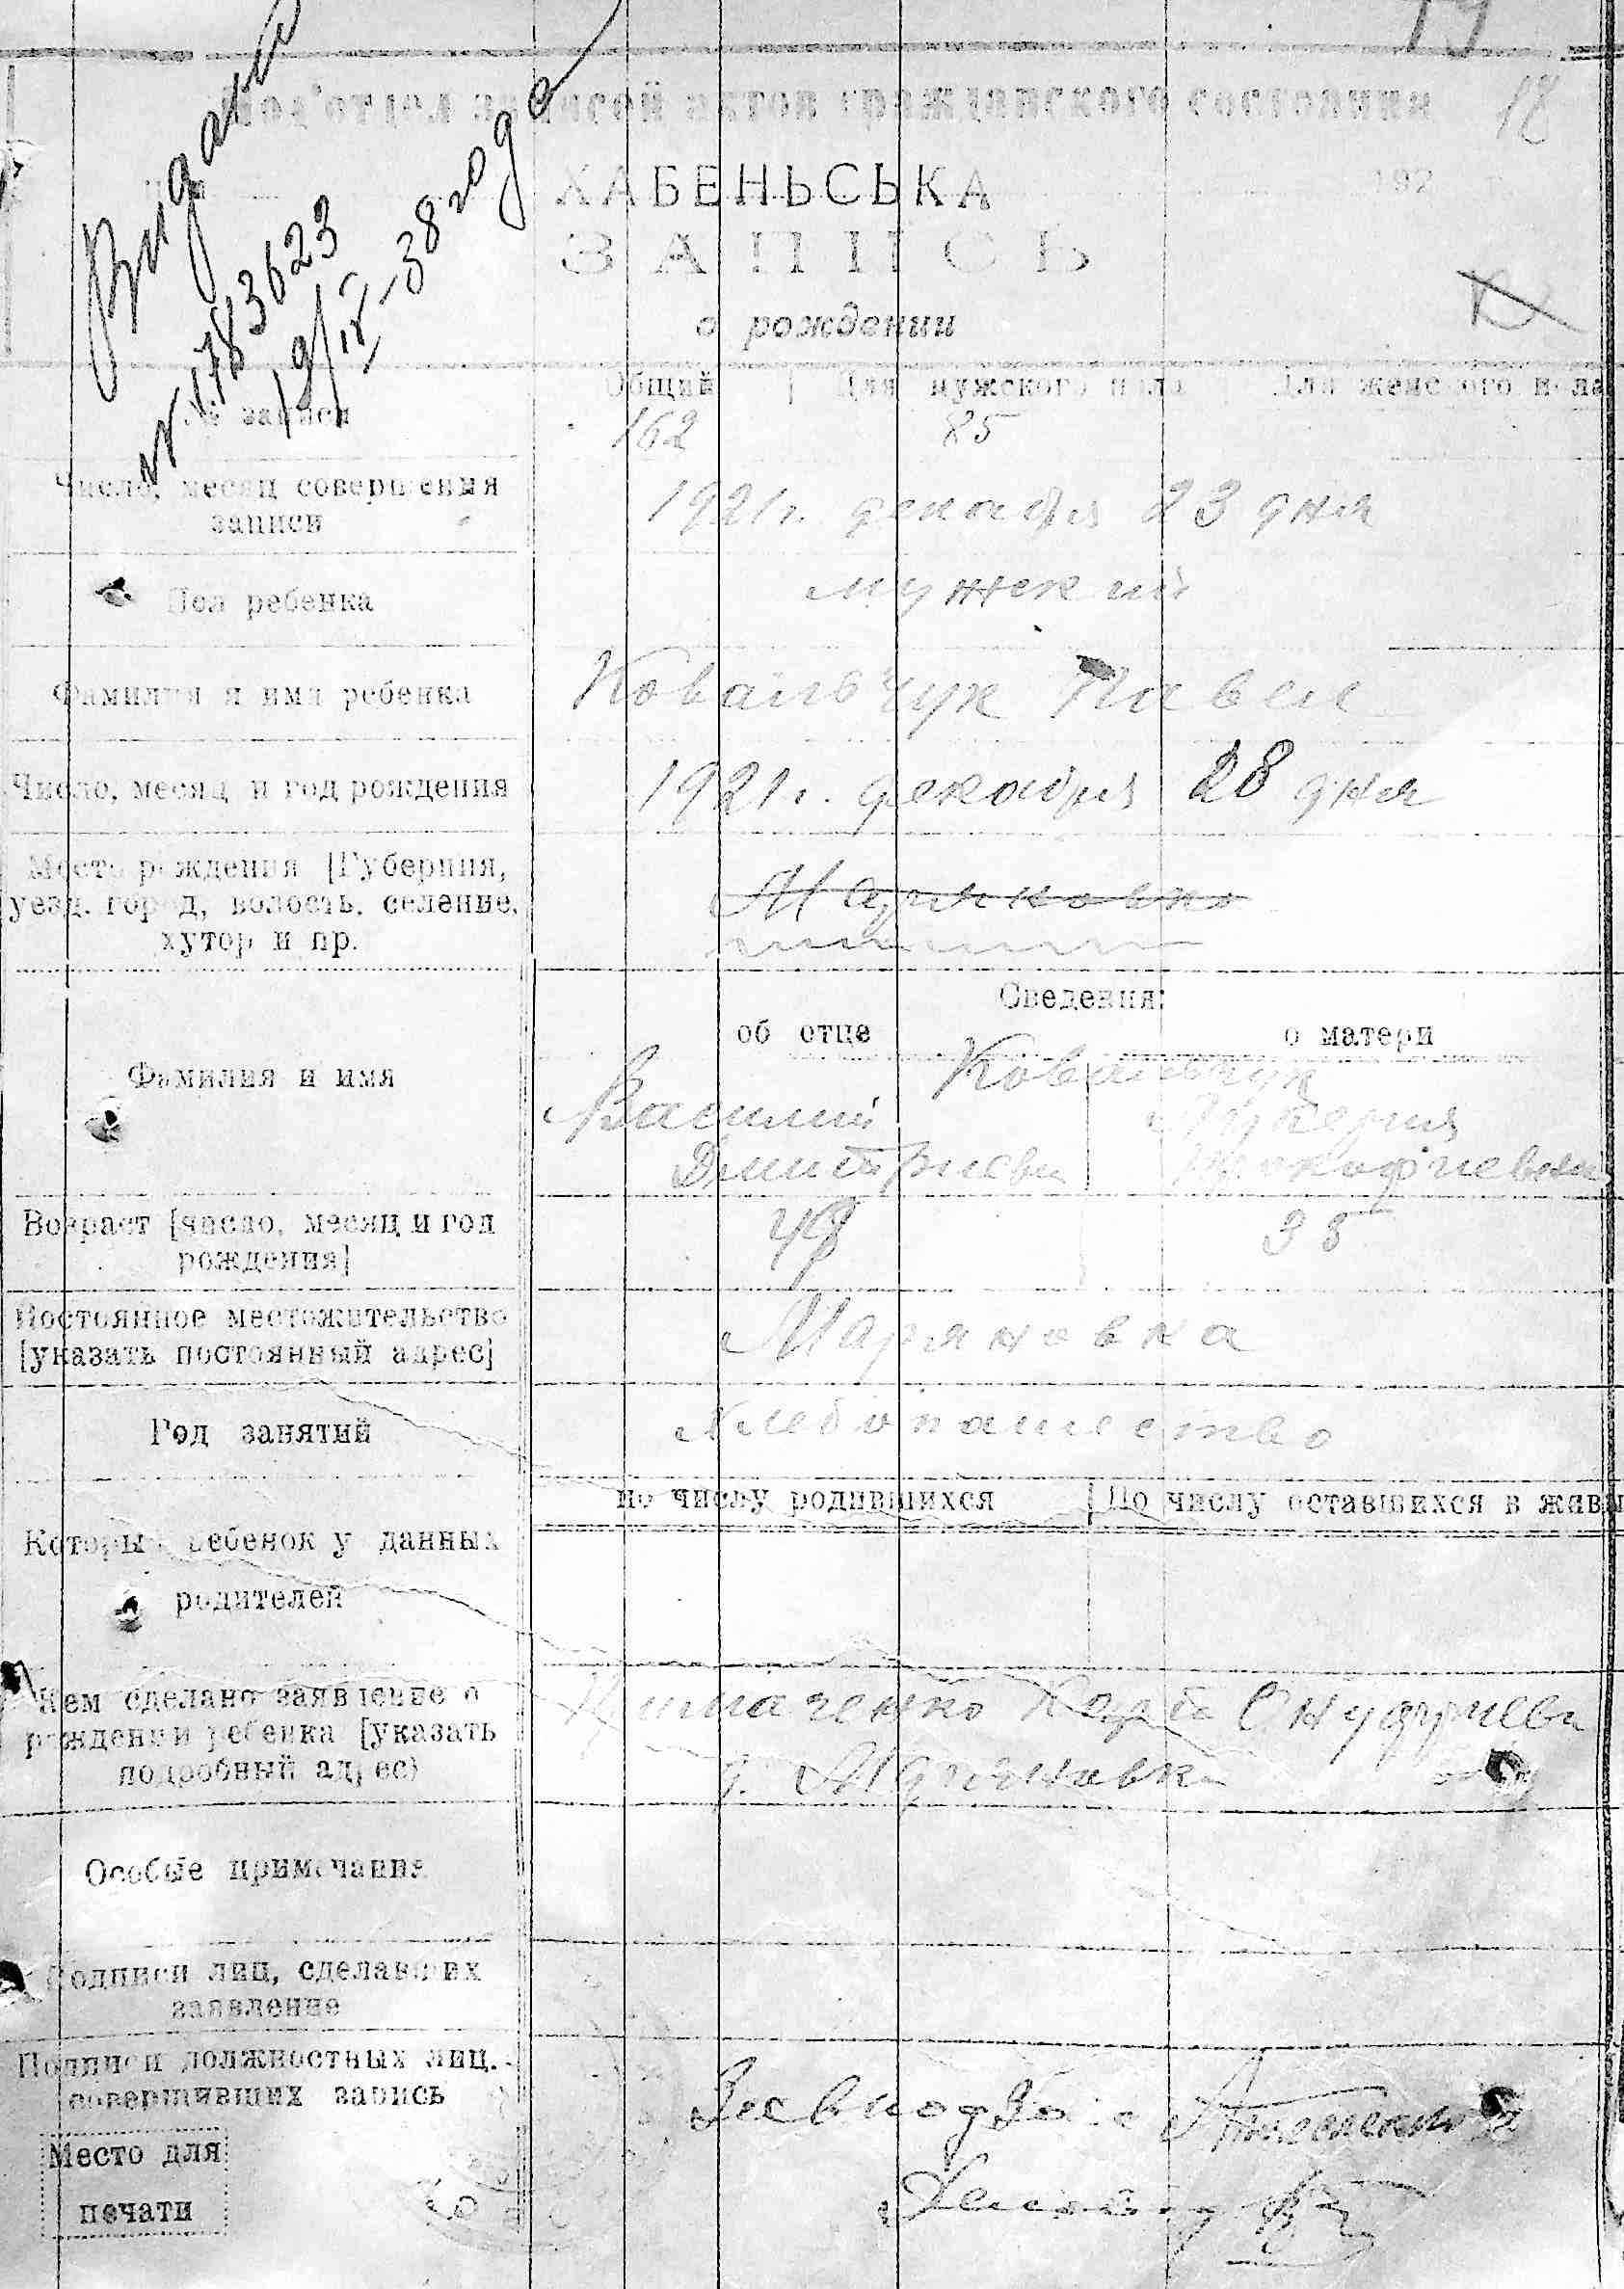 19
Под'отдел записей актов гражданского состояния
18
ХАБЕНЬСЬКА
192
ЗАПИСЬ
о рождении
Видано
№ 1783623
19/IX-38 года
Общий | Для мужского пола Для женского пола
№ записи 162 85
Число, месяц совершения 1921 г. декабря 23 дня
записи
Пол ребенка мужский
Фамилия и имя ребенка Ковальчук Павел
Число, месяц и год рождения 1921 г. декабря 28 дня
Место рождения [Губерния, Маряновка
уезд, город, волость, селение,
хутор и пр.
Сведения:
об отце о матери
Фамилия и имя Ковальчук
Василий Лукерия
Дмитриеви Прокофиевна
Возраст [число, месяц и год 35
рождения]
Постоянное местожительство Маряновка
[указать постоянный адрес]
Род занятий Хлебопашество
по числу родившихся | По числу оставшихся в живы
Который ребенок у данных
родителей
Кем сделано заявление о
рождении ребенка [указать
подробный адрес) д. Маряновка
Особые примечания
Подписи лиц, сделавших
заявление
Подписи должностных лиц,
совершивших запись
Место для
печати